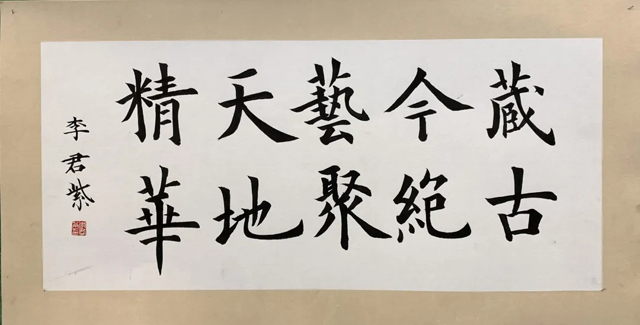 蔵古
今絕
藝聚
天地
精華
李君紫